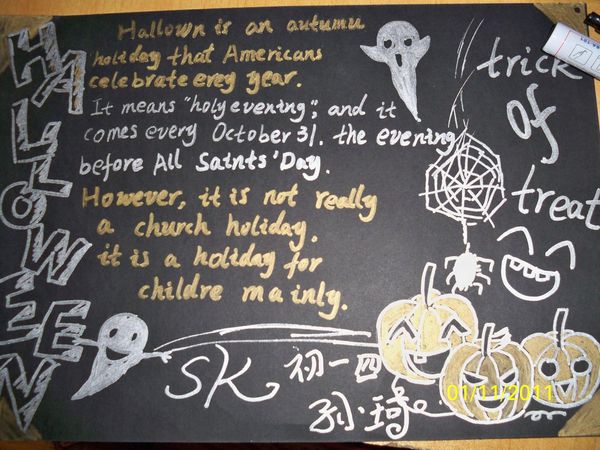 HALLOWEEN
Hallown is an autumu
holiday that Americans
celebrate erey year.
It means "holy evening", and it
comes every October 31. the evening
before All Saints' Day.
However, it is not really
a church holiday.
it is a holiday for
childre mainly.
trick
of
treat
SK 初一四
孙琦
01/11/2011